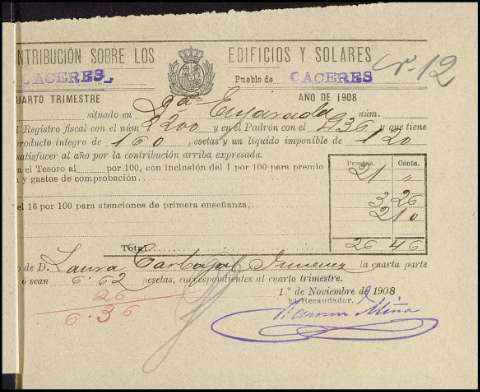 NTRIBUCIÓN SOBRE LOS EDIFICIOS Y SOLARES
CACERES Pueblo de CACERES N-12
UARTO TRIMESTRE AÑO DE 1908
situado en núm.
l Registro fiscal con el núm 2200 y en el Padrón con el 936 y que tiene
roducto integro de 160, esetas y un líquido imponible de 120
satisfacer al año por la contribución arriba expresada.
n el Tesoro al por 100, con inclusión del 1 por 100 para premio
n y gastos de comprobación
Pesetas. Cents.
21 "
3 26
el 16 por 100 para atenciones de primera enseñanza,
2 10
Total 26 46
o de D. Laura Carbajal Jimenez la cuarta parte
o sean 6.62 pesetas, correspondientes al cuarto trimestre.
26
6.36
1.º de Noviembre de 1908
El Recaudador.